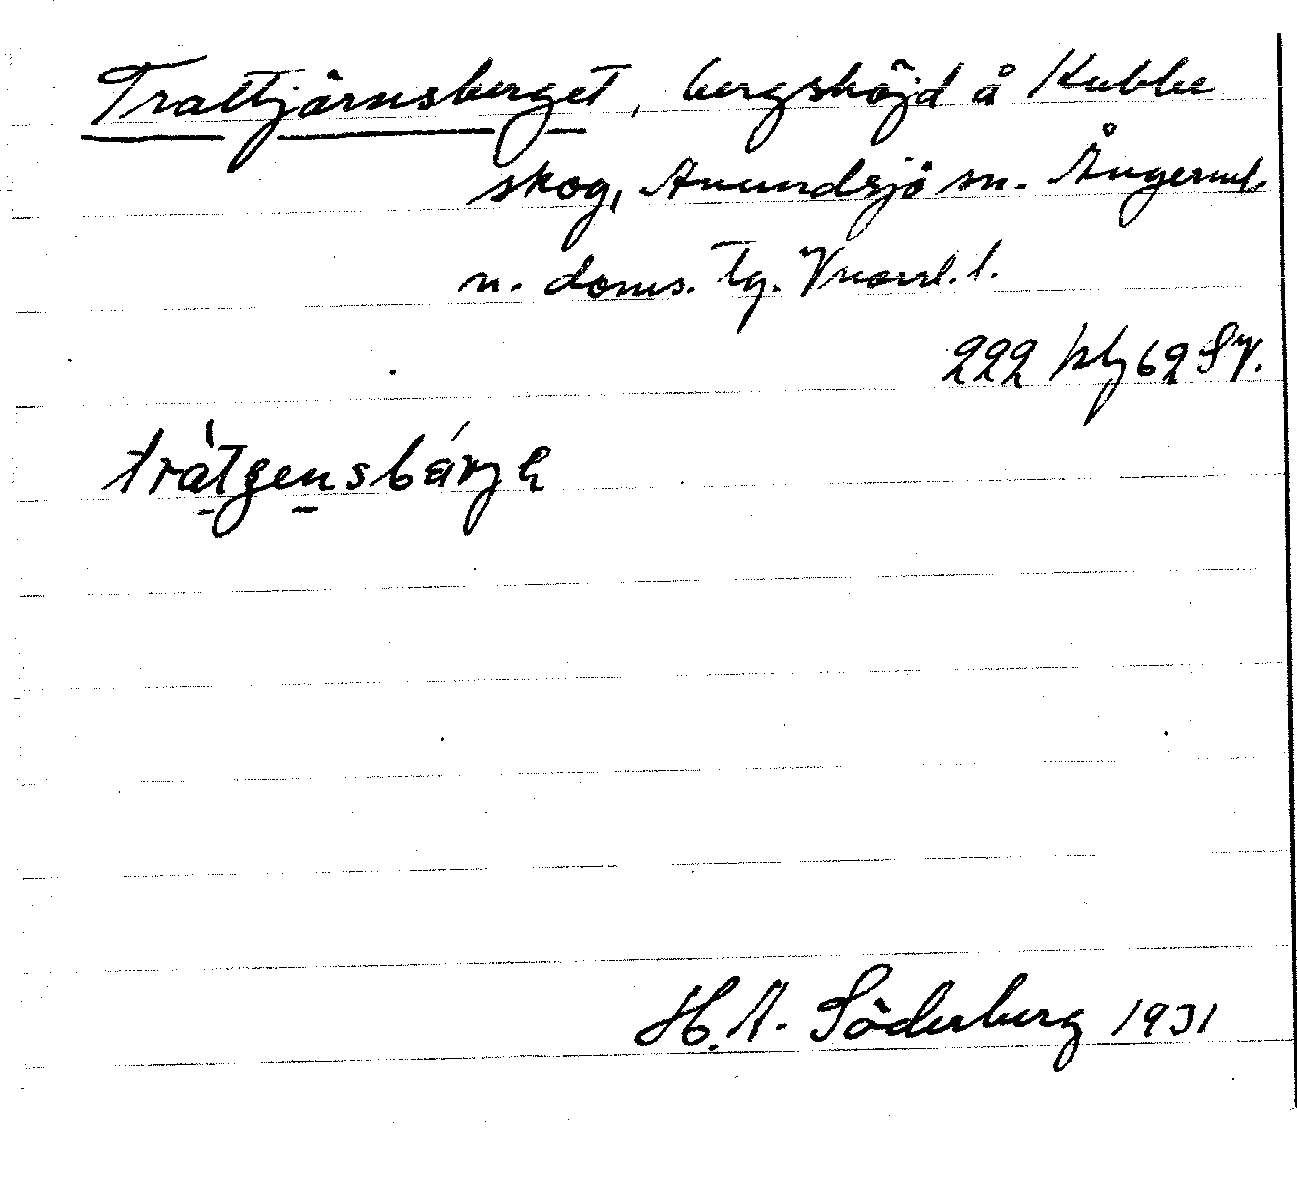 Trattjärnsberget, bergshöjd å Kubbe
skog, Anundsjö sn. Ångerml.
n. doms. tg. Vnorrl. l.
222 kbg 62 SV.
tràtgensbárje
H. A. Söderberg 1931